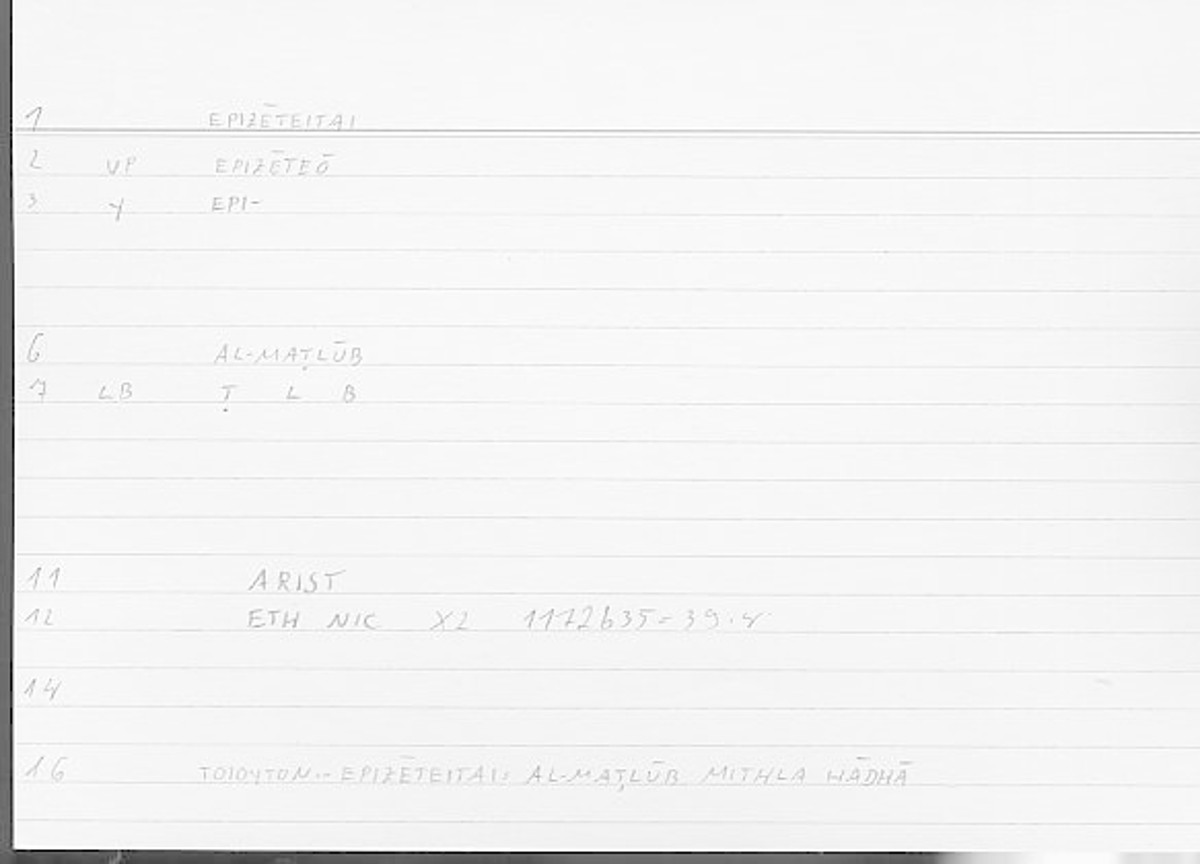 1 EPIZĒTEITAI
2 VP EPIZĒTEŌ
3 Y EPI-
6 AL-MAṬLŪB
7 LB Ṭ L B
11 ARIST
12 ETH NIC X2 1172b35-39.8
14
16 TOIOYTON.. EPIZĒTEITAI: AL-MAṬLŪB MITHLA HĀDHĀ